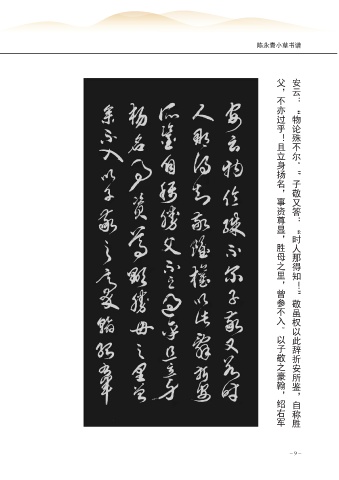 陈永贵小草书谱
安云：“物论殊不尔。”子敬又答：“时人那得知！”敬虽权以此辞折安所鉴，自称胜
父，不亦过乎！且立身扬名，事资尊显，胜母之里，曾参不入。以子敬之豪翰，绍右军
安云物论殊不尔子敬又答时
人那得知敬虽权以此辞折安
所鉴自称胜父不亦过乎且立身
扬名事资尊显胜母之里曾
参不入以子敬之豪翰绍右军
- 9 -